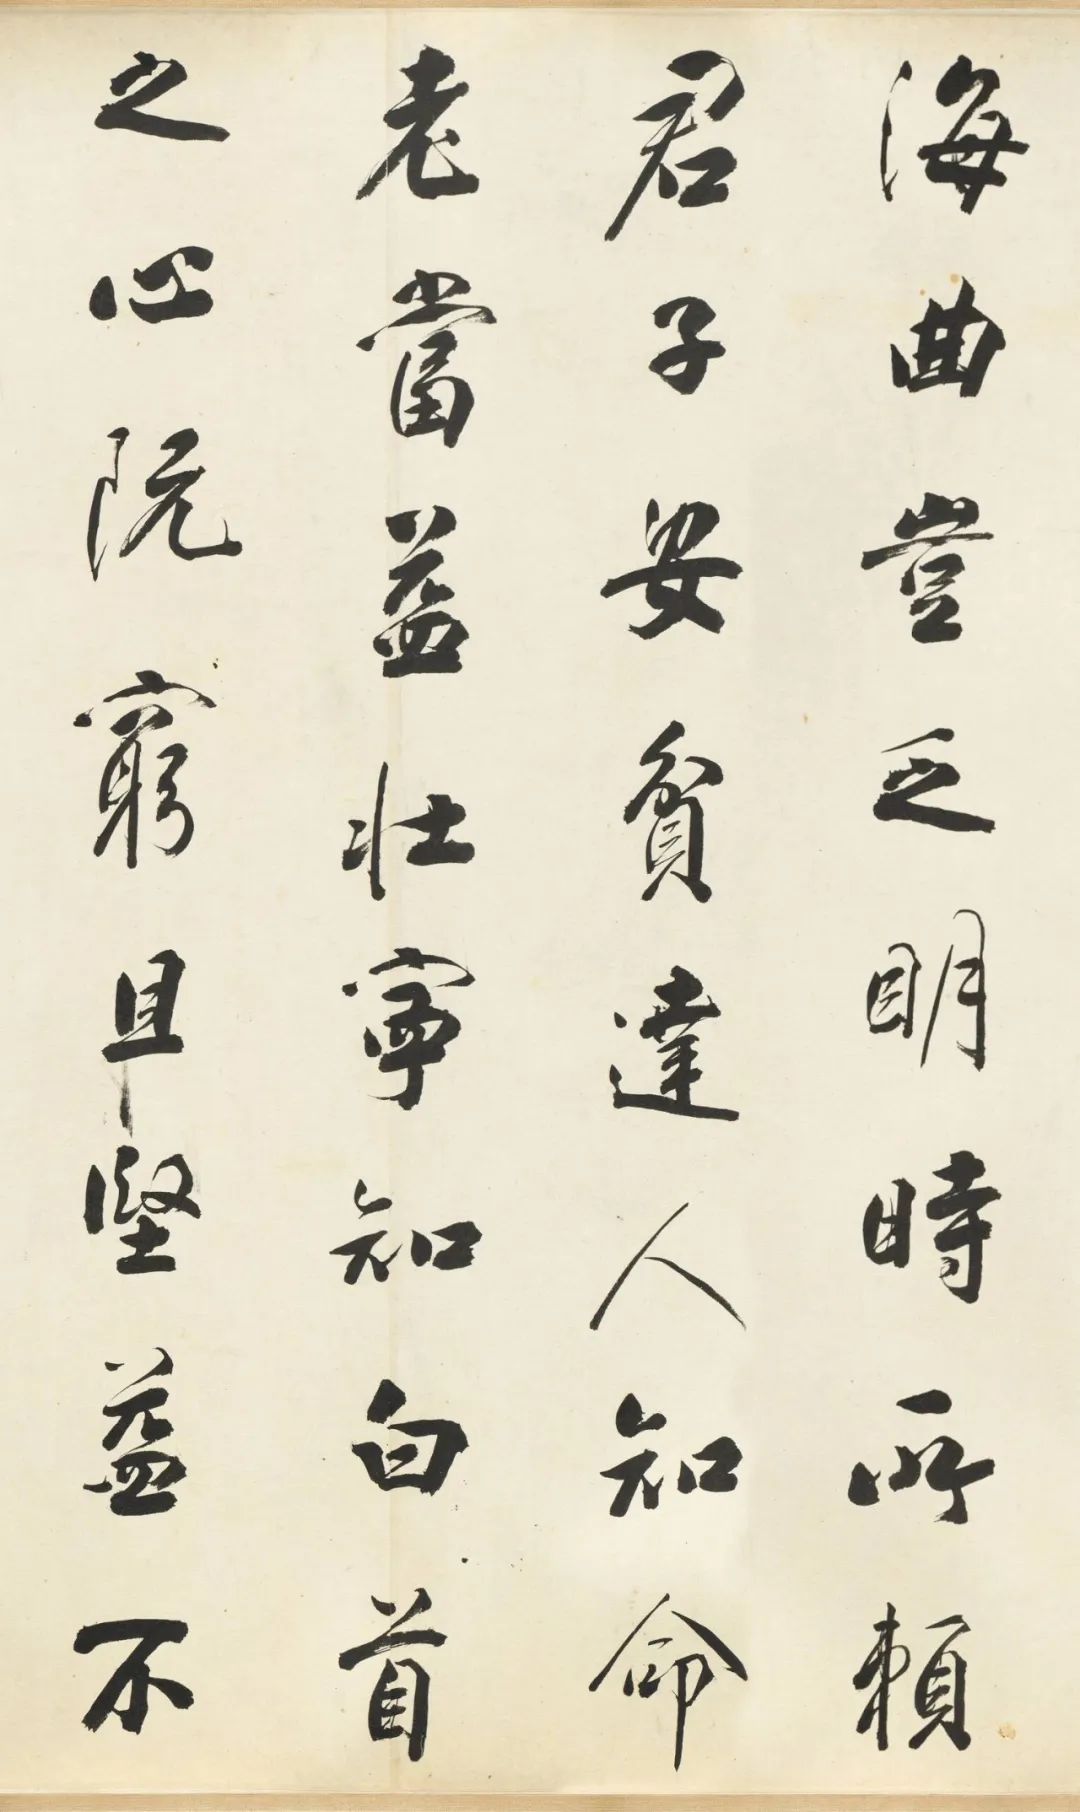 海曲豈乏明時所賴
君子安貧達人知命
老當益壯寧知白首
之心阨窮且堅益不